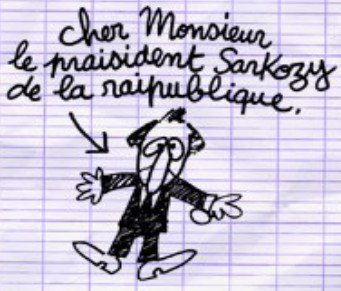 cher Monsieur
le praisident Sarkozy
de la raipublique.